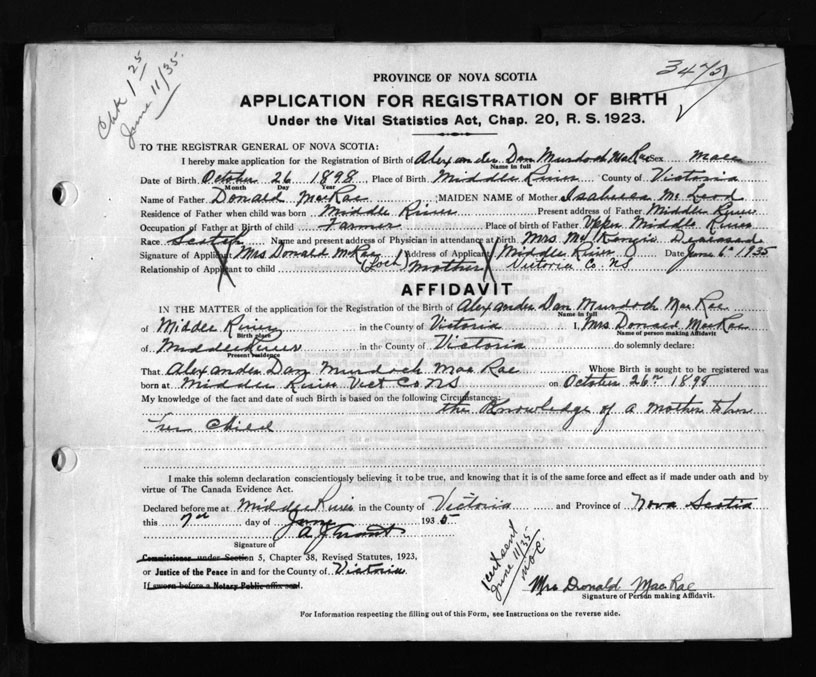 Chk 1.25
June 11/35.
3475
PROVINCE OF NOVA SCOTIA
APPLICATION FOR REGISTRATION OF BIRTH
Under the Vital Statistics Act, Chap. 20, R. S. 1923.
TO THE REGISTRAR GENERAL OF NOVA SCOTIA:
I hereby make application for the Registration of Birth of Alexander Dan Murdoch MacRae Sex male
Name in full
Date of Birth October 26 1898, Place of Birth Middle River County of Victoria
Month Day Year
Name of Father Donald MacRae MAIDEN NAME of Mother Isabella Mc Leod
Residence of Father when child was born Middle River Present address of Father Middle River
Occupation of Father at Birth of child Farmer Place of birth of Father Upper Middle River
Race Scotch Name and present address of Physician in attendance at birth Mrs Mc Kenzie Deceased
Signature of Applicant Mrs Donald McRae Address of Applicant Middle River Date June 6th 1935
Relationship of Applicant to child Mother Victoria Co. NS
AFFIDAVIT
IN THE MATTER of the application for the Registration of the Birth of Alexander Dan Murdoch MacRae
Name in full
of Middle River in the County of Victoria I, Mrs Donald MacRae
Birth place Name of person making Affidavit
of Middle River in the County of Victoria do solemnly declare:
Present residence
That Alexander Dan Murdoch MacRae Whose Birth is sought to be registered was
born at Middle River Vict Co NS on October 26th 1898
My knowledge of the fact and date of such Birth is based on the following Circumstances:
the Knowledge of a mother to
her Child
I make this solemn declaration conscientiously believing it to be true, and knowing that it is of the same force and effect as if made under oath and by
virtue of The Canada Evidence Act.
Declared before me at Middle River in the County of Victoria and Province of Nova Scotia
this 7th day of June 1935
Signature of
Commissioner under Section 5, Chapter 38, Revised Statutes, 1923,
or Justice of the Peace in and for the County of Victoria
If sworn before a Notary Public affix seal.
1 cert sent
June 11/35
Mrs Donald MacRae
Signature of Person making Affidavit.
For Information respecting the filling out of this Form, see Instructions on the reverse side.